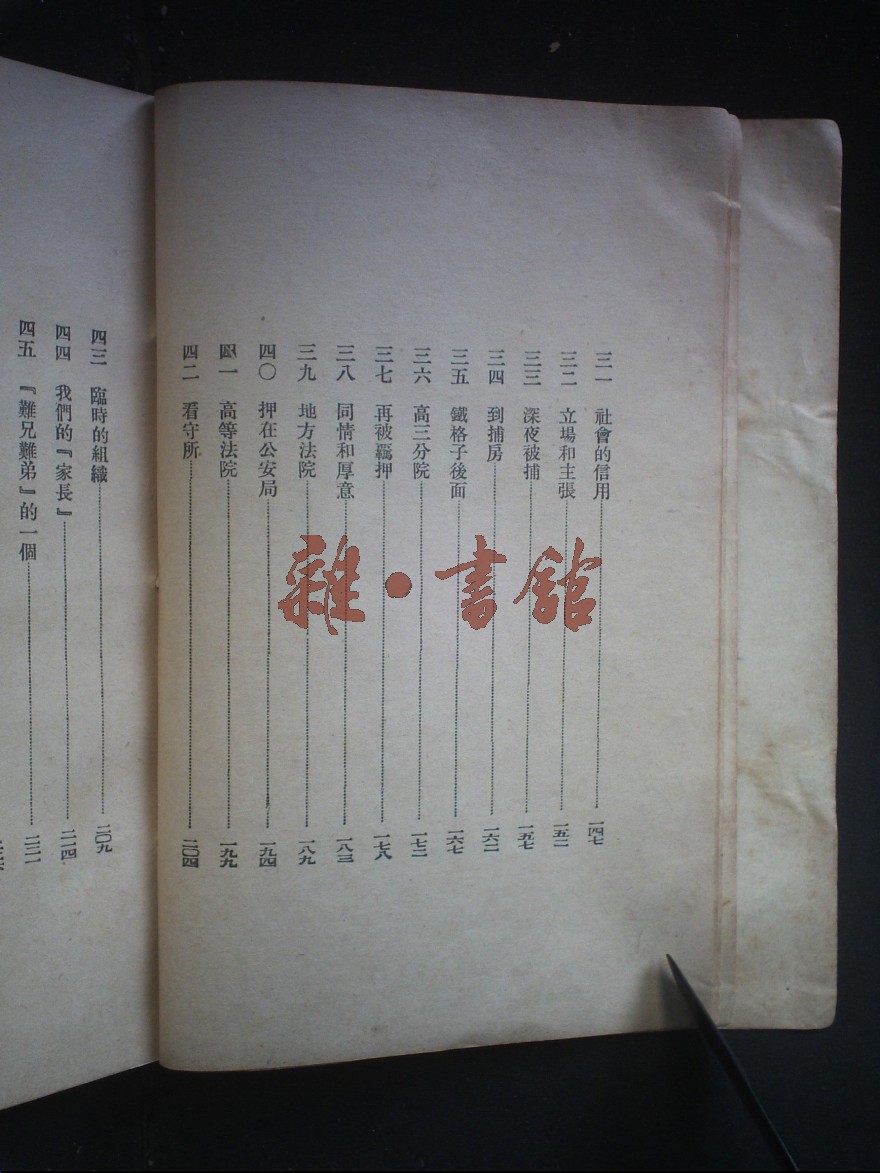 三一 社會的信用……一四七
三二 立場和主張……一五二
三三 深夜被捕……一五七
三四 到捕房……一六二
三五 鐵格子後面……一六七
三六 高三分院……一七二
三七 再被羈押……一七八
三八 同情和厚意……一八三
三九 地方法院……一八九
四〇 押在公安局……一九四
四一 高等法院……一九九
四二 看守所……二〇四
四三 臨時的組織……二〇九
四四 我們的『家長』……二一四
四五 『難兄難弟』的一個……二二一
雜·書館